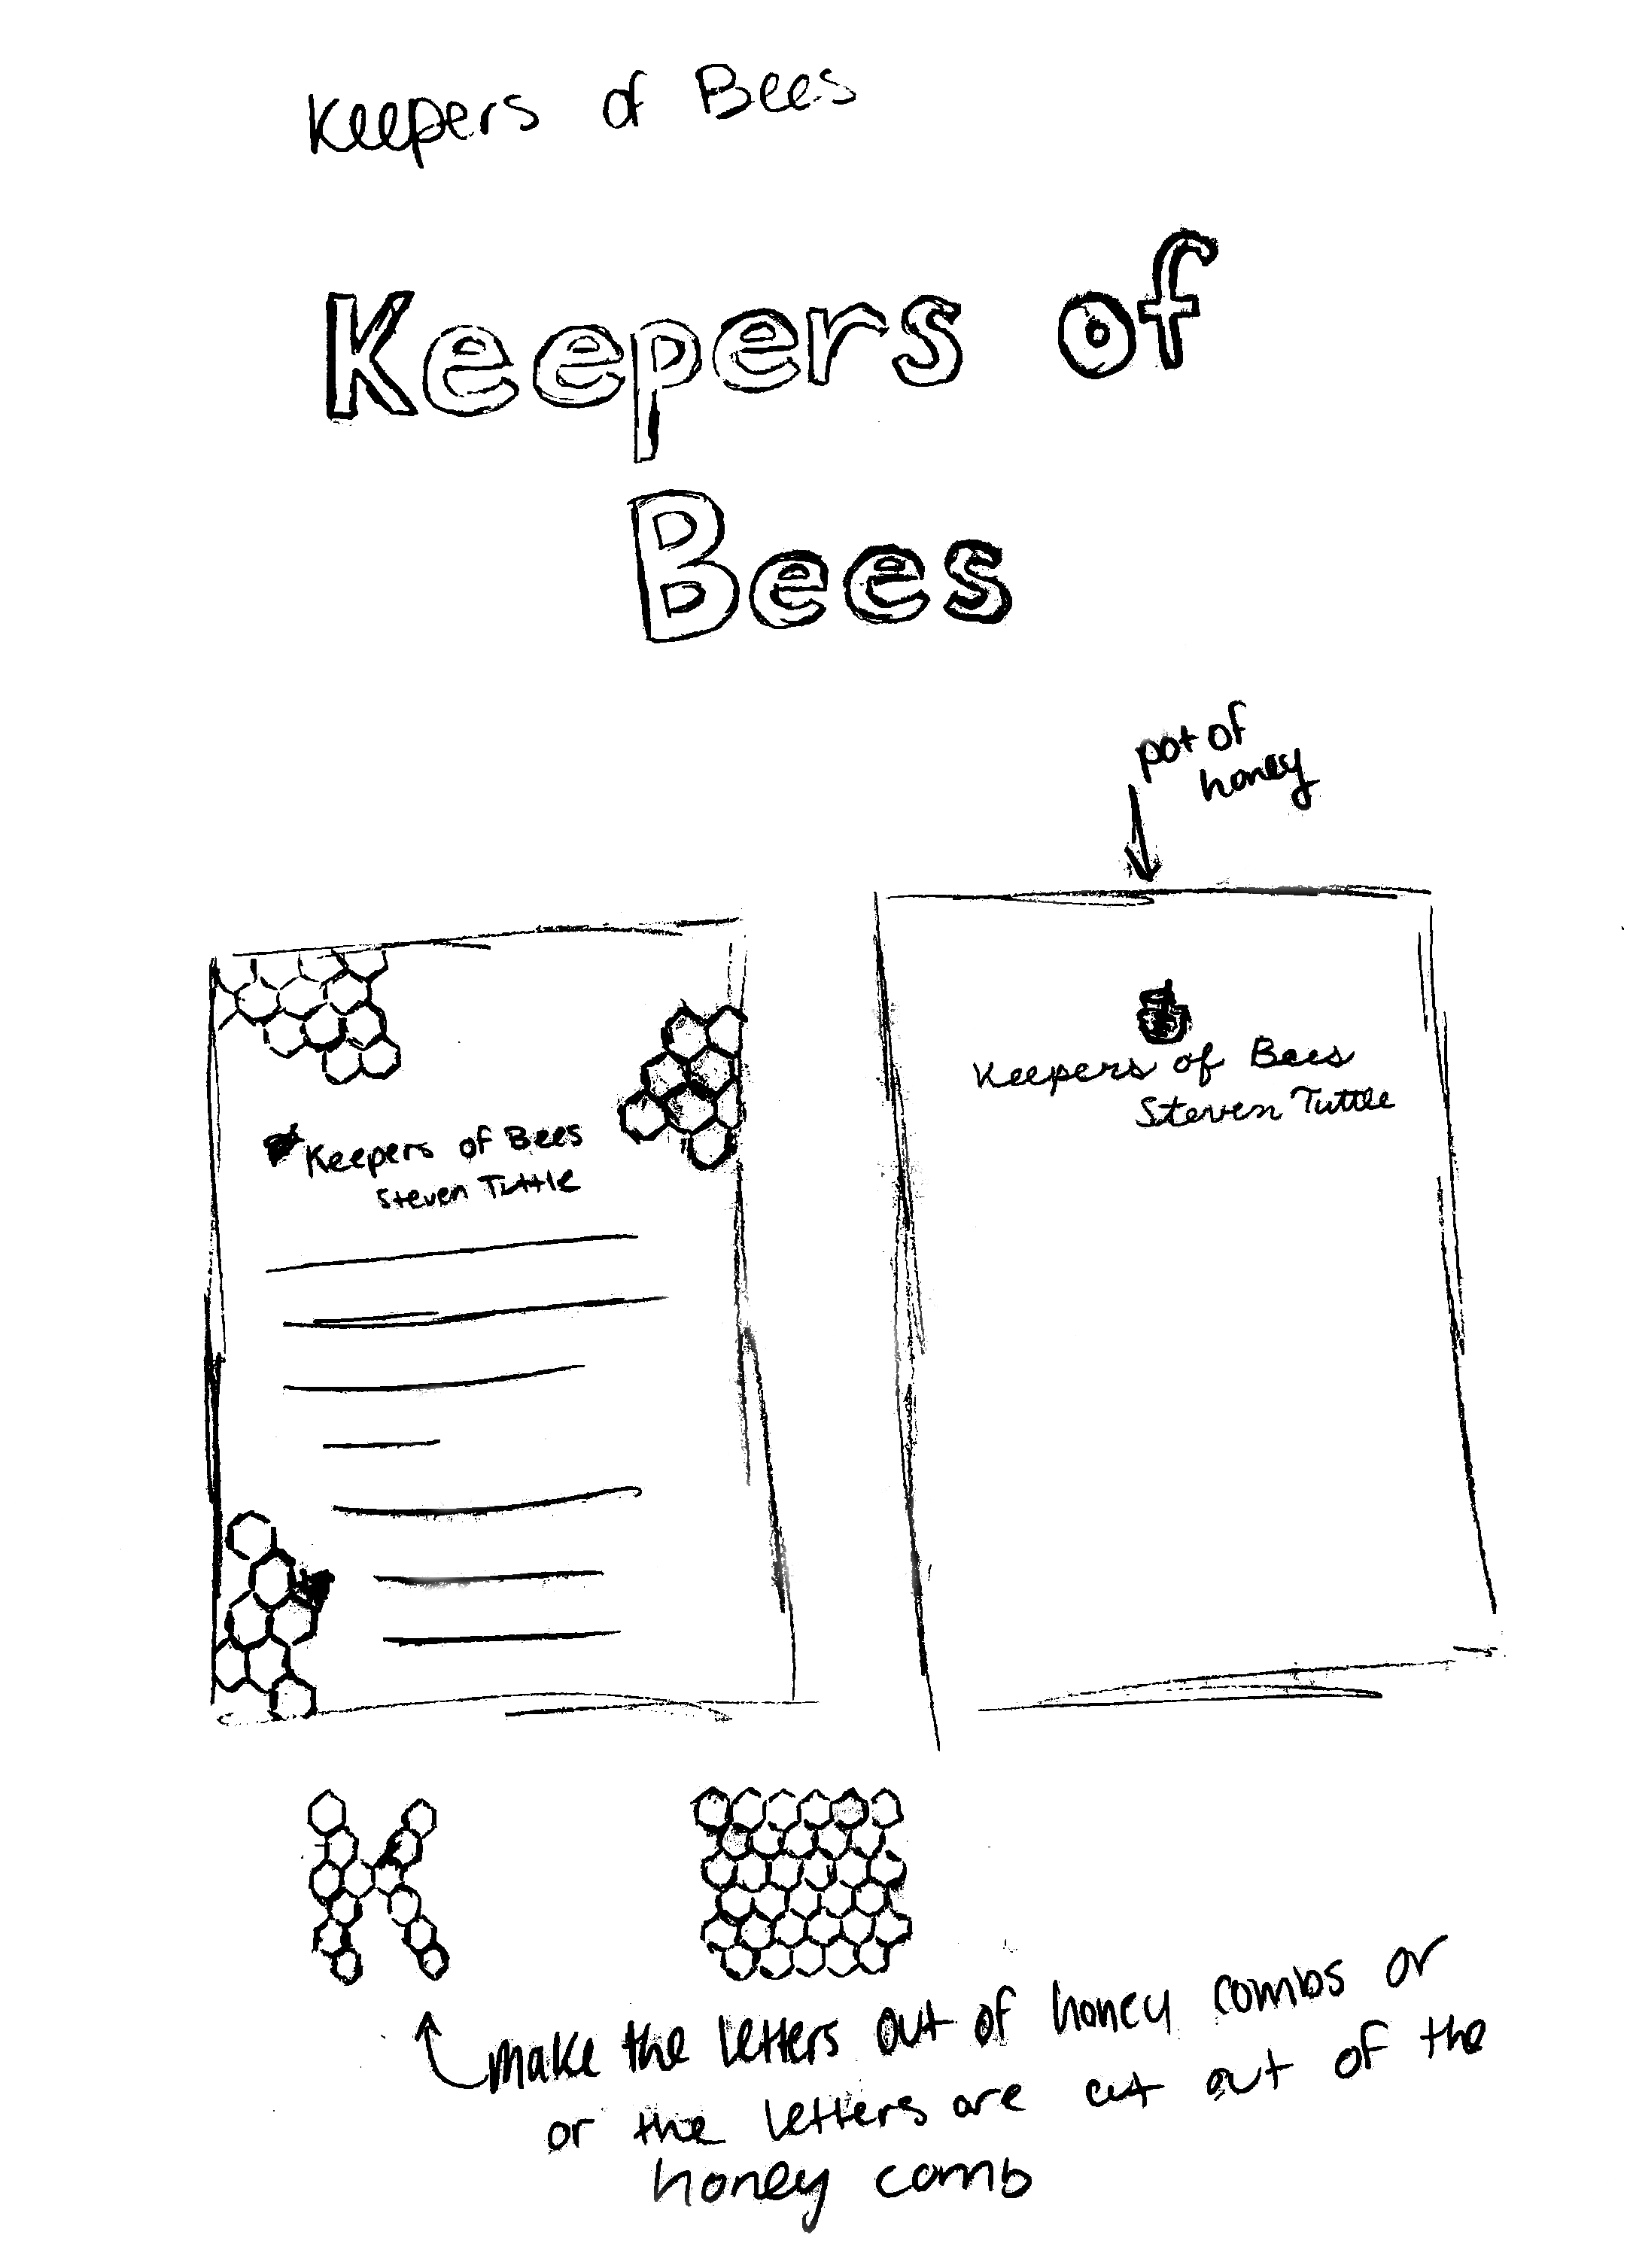 Keepers of Bees
Keepers of
Bees
pot of
honey
Keepers of Bees
Steven Tuttle
Keepers of Bees
Steven Tuttle
K
make the letters out of honey combs or
or the letters are cut out of the
honey comb